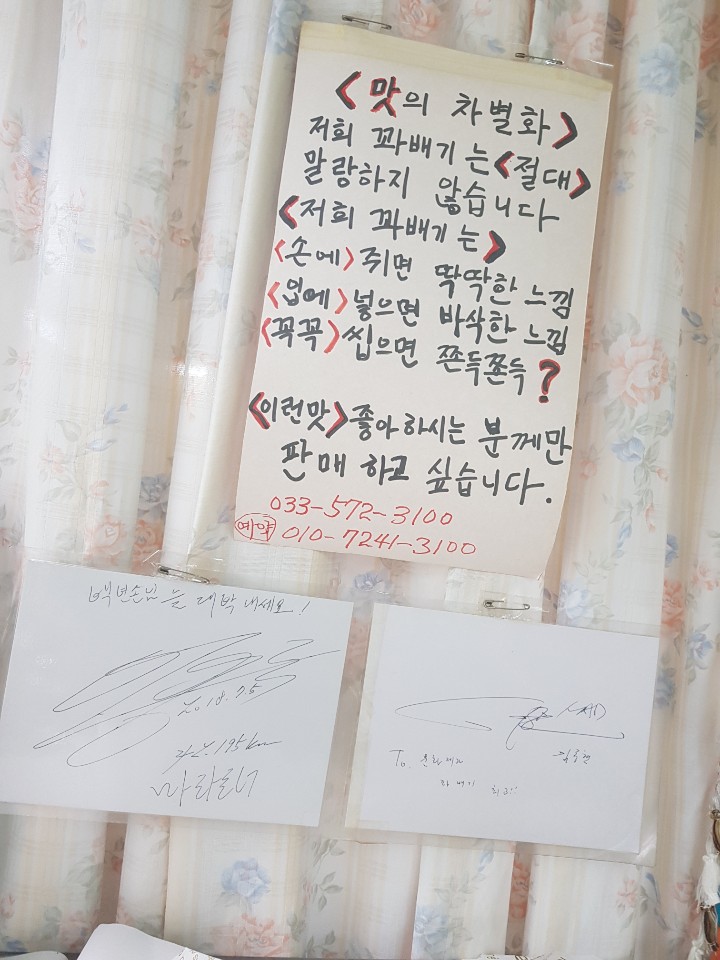 <맛의 차별화>
저희 꽈배기는 <절대>
말랑하지 않습니다
<저희 꽈배기는>
<손에> 쥐면 딱딱한 느낌
<입에> 넣으면 바삭한 느낌
<꼭꼭> 씹으면 쫀득쫀득?
<이런맛> 좋아하시는 분께만
판매 하고 싶습니다.
033-572-3100
예약 010-7241-3100
늘 대박 내세요!
2018.7.5
195km
마라토너
To.
꽈배기